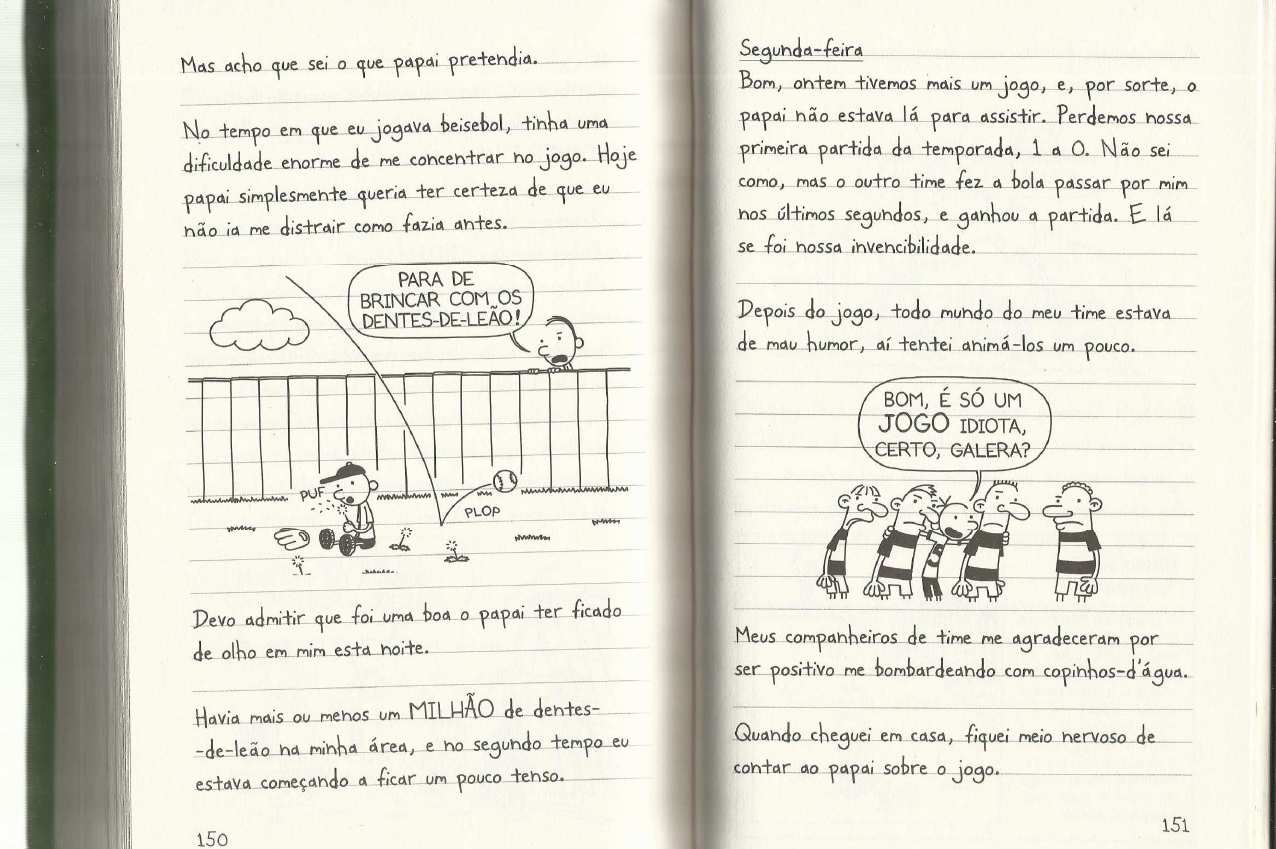 Mas acho que sei o que papai pretendia.
No tempo em que eu jogava beisebol, tinha uma
dificuldade enorme de me concentrar no jogo. Hoje
papai simplesmente queria ter certeza de que eu
não ia me distrair como fazia antes.
PARA DE
BRINCAR COM OS
DENTES-DE-LEÃO!
PUF
PLOP
Devo admitir que foi uma boa o papai ter ficado
de olho em mim esta noite.
Havia mais ou menos um MILHÃO de dentes-
-de-leão na minha área, e no segundo tempo eu
estava começando a ficar um pouco tenso.
150
Segunda-feira
Bom, ontem tivemos mais um jogo, e, por sorte, o
papai não estava lá para assistir. Perdemos nossa
primeira partida da temporada, 1 a 0. Não sei
como, mas o outro time fez a bola passar por mim
nos últimos segundos, e ganhou a partida. E lá
se foi nossa invencibilidade.
Depois do jogo, todo mundo do meu time estava
de mau humor, aí tentei animá-los um pouco.
BOM, É SÓ UM
JOGO IDIOTA,
CERTO, GALERA?
Meus companheiros de time me agradeceram por
ser positivo me bombardeando com copinhos-d'água.
Quando cheguei em casa, fiquei meio nervoso de
contar ao papai sobre o jogo.
151